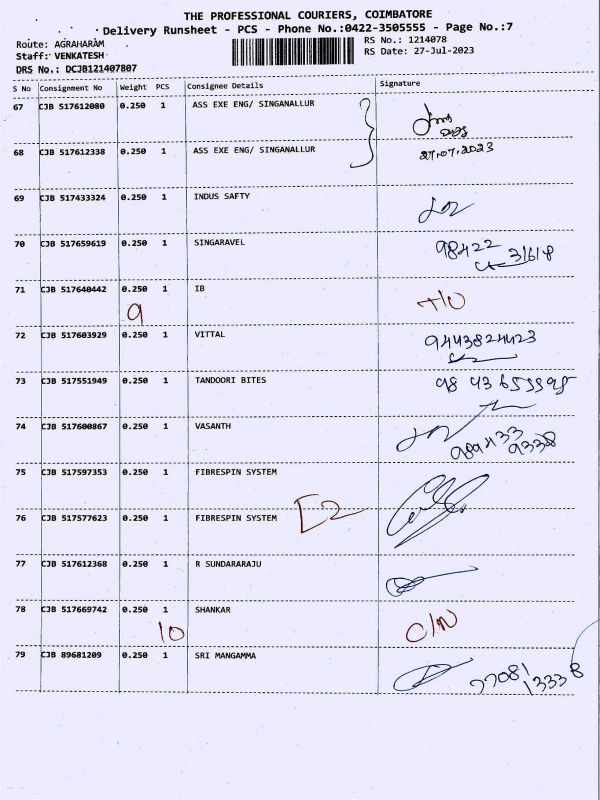 THE PROFESSIONAL COURIERS, COIMBATORE
Delivery Runsheet - PCS - Phone No.:0422-3505555 - Page No.:7
Route: AGRAHARAM
RS No.: 1214078
Staff: VENKATESH
RS Date: 27-Jul-2023
DRS No.: DCJB121407807
S No Consignment No Weight PCS Consignee Details Signature
67 CJB 517612080 0.250 1 ASS EXE ENG/ SINGANALLUR
68 CJB 517612338 0.250 1 ASS EXE ENG/ SINGANALLUR 27.07.2023
69 CJB 517433324 0.250 1 INDUS SAFTY
70 CJB 517659619 0.250 1 SINGARAVEL 98422
31618
71 CJB 517640442 0.250 1 IB
9
72 CJB 517603929 0.250 1 VITTAL 9443824423
73 CJB 517551949 0.250 1 TANDOORI BITES
74 CJB 517600867 0.250 1 VASANTH
9338
75 CJB 517597353 0.250 1 FIBRESPIN SYSTEM
[2
76 CJB 517577623 0.250 1 FIBRESPIN SYSTEM
77 CJB 517612368 0.250 1 R SUNDARARAJU
78 CJB 517669742 0.250 1 SHANKAR C/N
10
79 CJB 89681209 0.250 1 SRI MANGAMMA 77081
13338